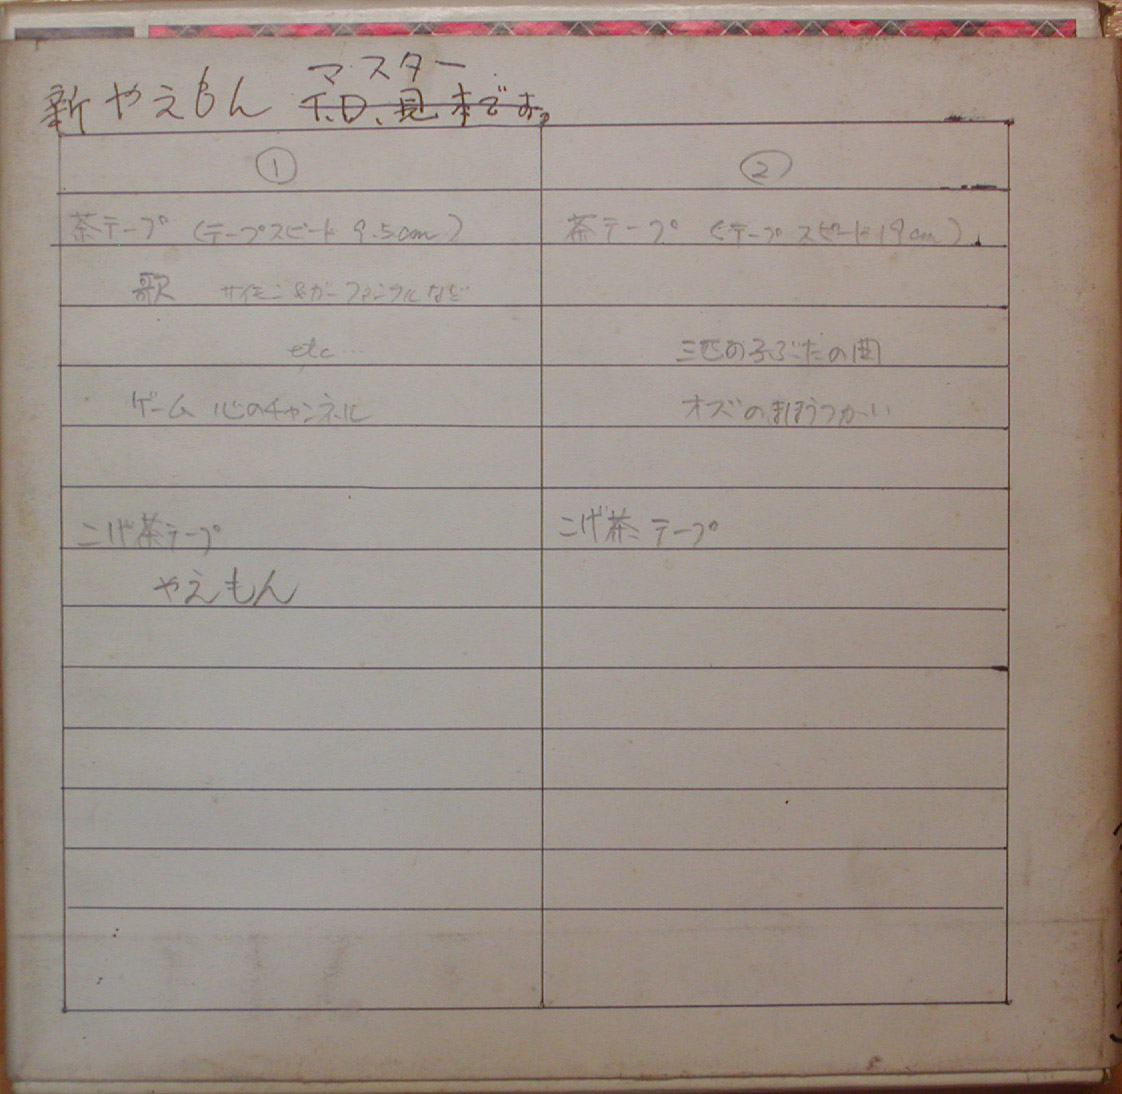 マスター
新やえもん 見本です。
① ②
茶テープ (テープスピード 9.5cm) 茶テープ (テープスピード19cm)
歌 サイモン&ガーファンクルなど
etc… 三匹の子ぶたの曲
ゲーム 心のチャンネル オズのまほうつかい
こげ茶テープ こげ茶テープ
やえもん